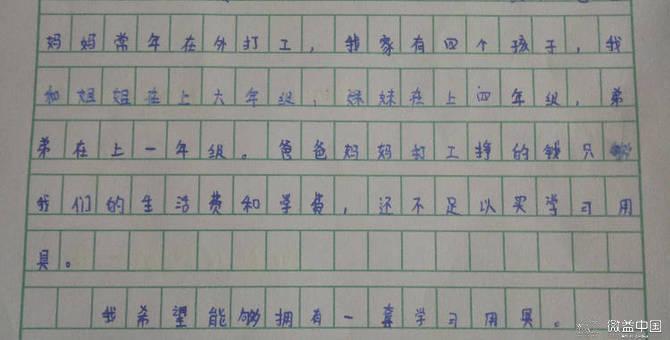 妈妈常年在外打工，我家有四个孩子，我
和姐姐在上六年级，妹妹在上四年级，弟
弟在上一年级。爸爸妈妈打工挣的钱只
我们的生活费和学费，还不足以买学习用
具。
我希望能够拥有一套学习用具。
微益中国